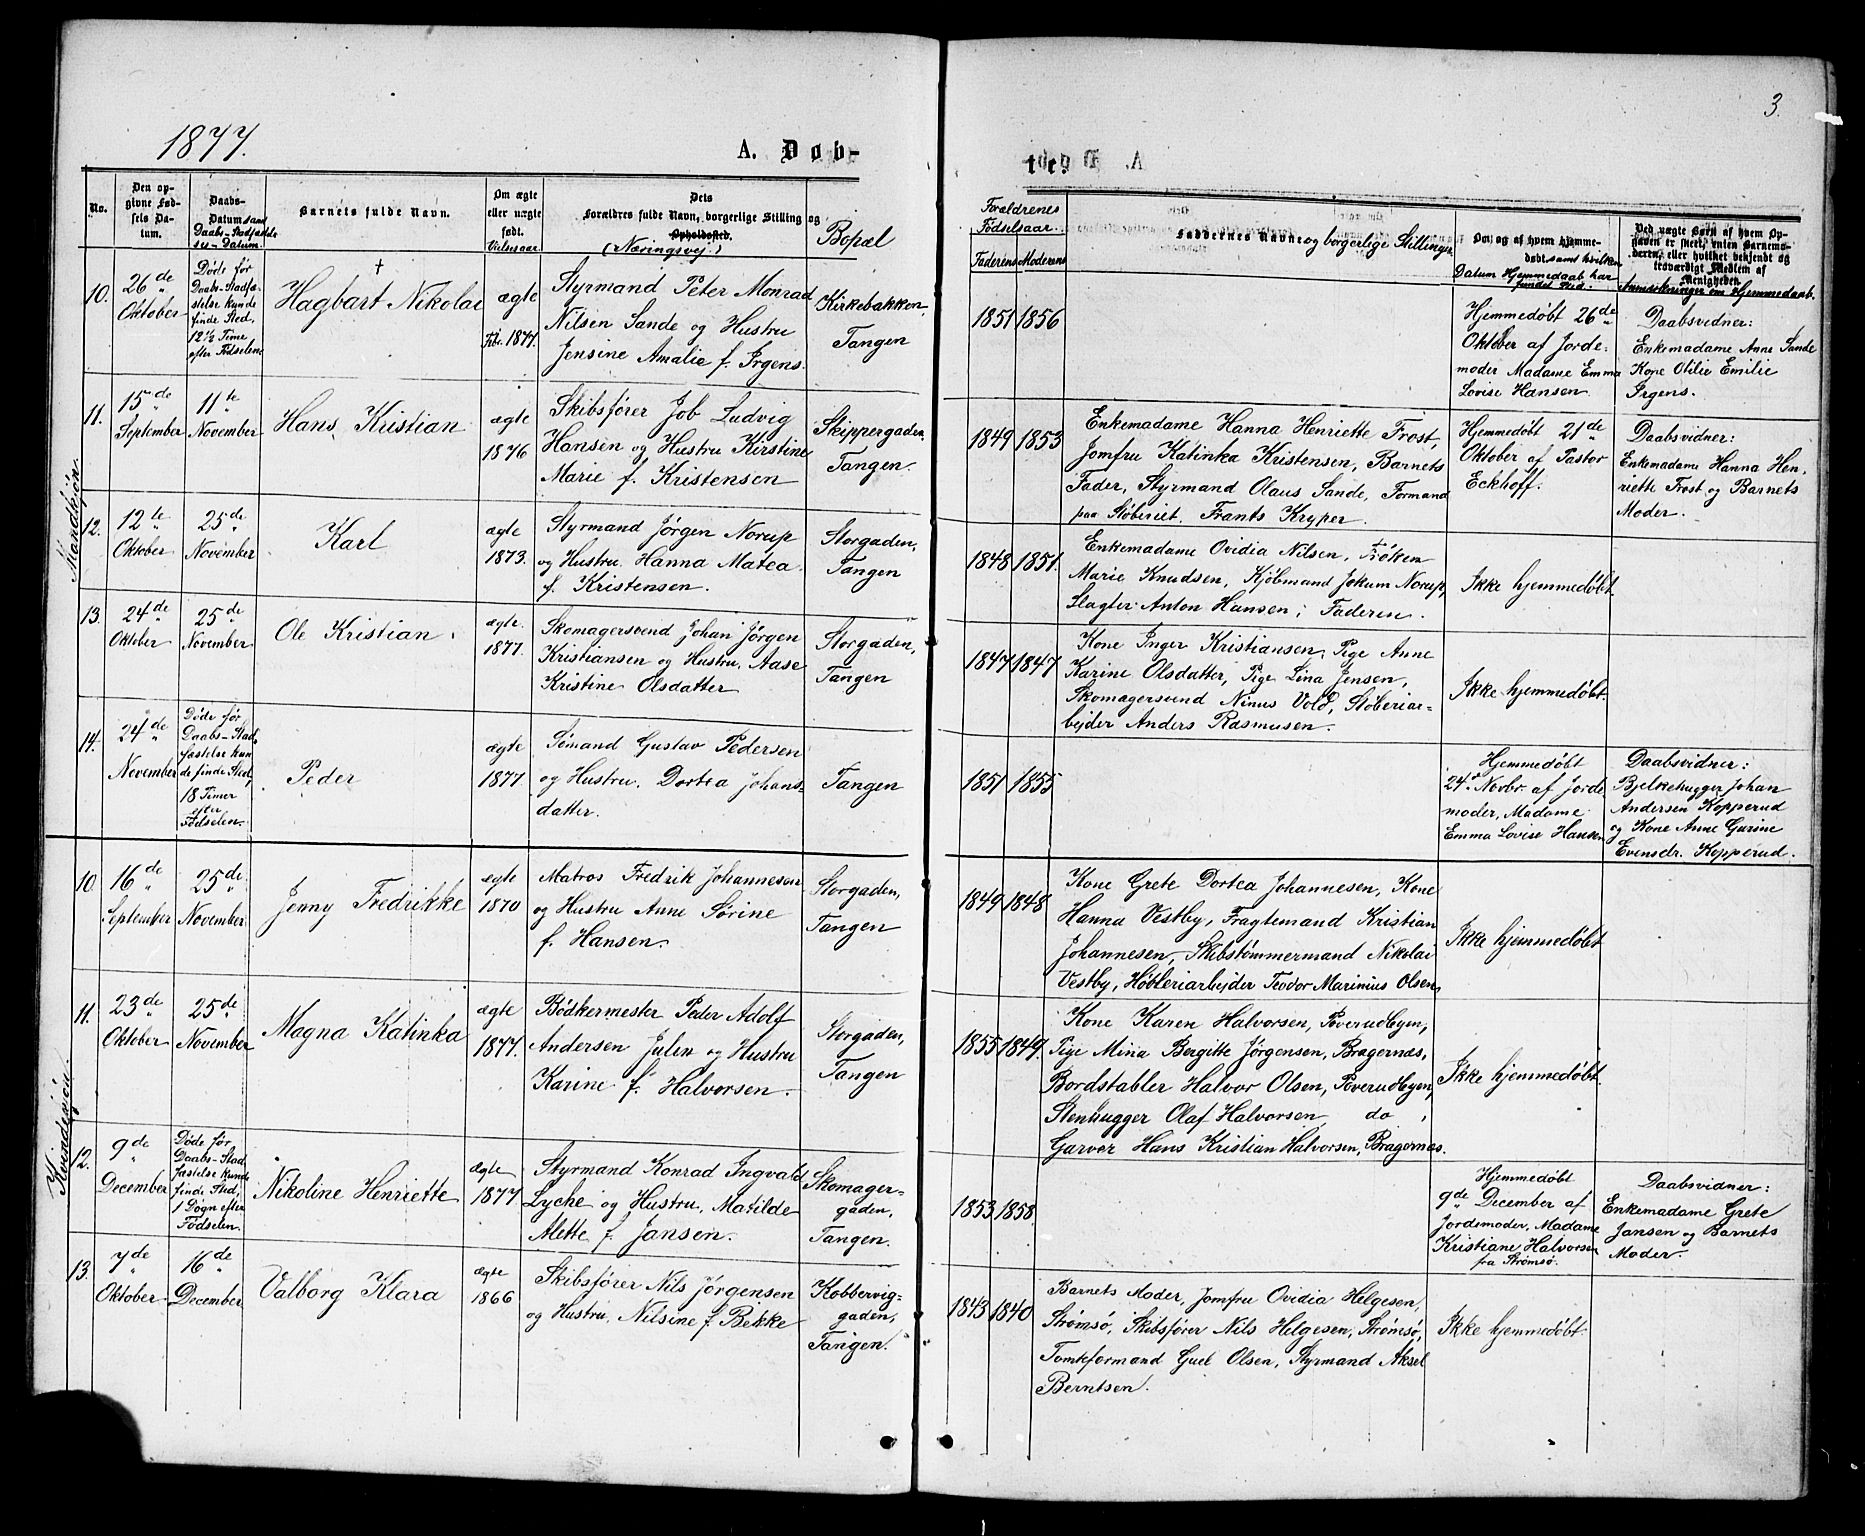 1877.
A. Døb-
No.
Den op-
givne Fød-
sels Da-
tum.
Daabs-
Datum samt
Daabs-Stadfæstel-
ses-Datum.
Barnets fulde Navn.
Om ægte
eller uægte
født.
Vielsesaar.
Dets
Forældres fulde Navn, borgerlige Stilling og
Opholdssted.
(Næringsvej.)
Bopæl
Mandkjøn.
10.
26de
Oktober
Døde før
Daabs-Stadfæ-
stelse kunde
finde Sted,
12½ Time
efter Fødselen.
†
Hagbart Nikolai
ægte
Febr. 1877.
Styrmand Peter Monrad
Nilsen Sande og Hustru
Jensine Amalie f. Irgens.
Kirkebakken.
Tangen
11.
15de
September
11te
November
Hans Kristian
ægte
1876
Skibsfører Job Ludvig
Hansen og Hustru Kirstine
Marie f. Kristensen
Skippergaden
Tangen.
12.
12te
Oktober
25de
November
Karl
ægte
1873.
Styrmand Jørgen Norup
og Hustru Hanna Matea
f. Kristensen.
Storgaden,
Tangen
13.
24de
Oktober
25de
November
Ole Kristian
ægte.
1877.
Skomagersvend Johan Jørgen
Kristiansen og Hustru, Aase
Kristine Olsdatter
Storgaden,
Tangen
14.
24de
November
Døde før
Daabs-Stad-
fæstelse kun-
de finde Sted,
18 Timer
efter
Fødselen.
Peder
ægte
1877
Sømand Gustav Pedersen
og Hustru, Dortea Johans-
datter.
Tangen
Kvindekjøn.
10.
16de
September
25de
November
Jenny Fredrikke
ægte
1870
Matros Fredrik Johannesen
og Hustru Anne Sørine
f. Hansen.
Storgaden,
Tangen
11.
23de
Oktober
25de
November
Magna Katinka
ægte
1877.
Bødkermester Peder Adolf
Andersen Julin og Hustru
Karine f. Halvorsen.
Storgaden,
Tangen
12.
9de
December
Døde før
Daabs-Stad-
fæstelse kunde
finde Sted,
1 Døgn efter
Fødselen.
Nikoline Henriette
ægte
1877
Styrmand Konrad Ingvald
Lyche og Hustru, Matilde
Alette f. Jansen.
Skomager-
gaden,
Tangen.
13.
7de
Oktober
16de
December
Valborg Klara
ægte
1866
Skibsfører Nils Jørgensen
og Hustru, Nilsine f. Bekke
Kobbervig-
gaden,
Tangen.
3.
te.
Forældrenes
Fødselsaar.
Faderens Moderens
Faddernes Navne og borgerlige Stillinger
Om og af hvem hjemme-
døbt. samt hvilken
Datum Hjemmedaab har
fundet Sted.
Ved uægte Børn af hvem Op-
gaven er skeet, enten Barnemo-
deren, eller hvilket bekjendt og
troværdigt Medlem af
Menigheden.
Anmærkninger om Hjemmedaab.
1851 1856
Hjemmedøbt 26de
Oktober af Jorde-
moder Madame Emma
Lovise Hansen
Daabsvidner:
Enkemadame Anne Sande
Kone Otilie Emilie
Irgens.
1849 1853
Enkemadame Hanna Henriette Frost,
Jomfru Katinka Kristensen, Barnets
Fader, Styrmand Olaus Sande, Formand
paa Støberiet Frants Kryper.
Hjemmedøbt 21de
Oktober af Pastor
Eckhoff.
Daabsvidner:
Enkemadame Hanna Hen-
riette Frost og Barnets
Moder.
1848 1851.
Enkemadame Ovidia Nilsen, Frøken
Marie Knudsen, Kjøbmand Jokum Norup,
Slagter Anton Hansen, Faderen.
Ikke hjemmedøbt
1847 1847
Kone Inger Kristiansen, Pige Anne
Karine Olsdatter, Pige Lina Jensen,
Skomagersvend Ninus Vold, Støberiar-
bejder Anders Rasmusen.
Ikke hjemmedøbt
1851 1855
Hjemmedøbt
24d Novbr. af Jorde
moder, Madame
Emma Lovise Hansen
Daabsvidner:
Bjelkehugger Johan
Andersen Kopperud
og Kone Anne Gurine
Evensdr. Kopperud.
1849 1848
Kone Grete Dortea Johannesen, Kone
Hanna Vestby, Fragtemand Kristian
Johannesen, Skibstømmermand Nikolai
Vestby, Høvleriarbejder Teodor Marinius Olsen,
Ikke hjemmedøbt
1855 1849.
Kone Karen Halvorsen, Poverudbyen,
Pige Mina Bergitte Jørgensen, Bragernæs,
Bordstabler Halvor Olsen, Poverudbyen,
Stenhugger Olaf Halvorsen do,
Garver Hans Kristian Halvorsen, Bragernæs.
Ikke hjemmedøbt
1853 1858.
Hjemmedøbt
9de December af
Jordemoder, Madame
Kristiane Halvorsen
fra Strømsø.
Daabsvidner:
Enkemadame Grete
Jansen og Barnets
Moder.
1843 1840
Barnets Moder, Jomfru Ovidia Helgesen,
Strømsø, Skibsfører Nils Helgesen, Strømsø,
Tomteformand Guel Olsen, Styrmand Aksel
Berntsen.
Ikke hjemmedøbt